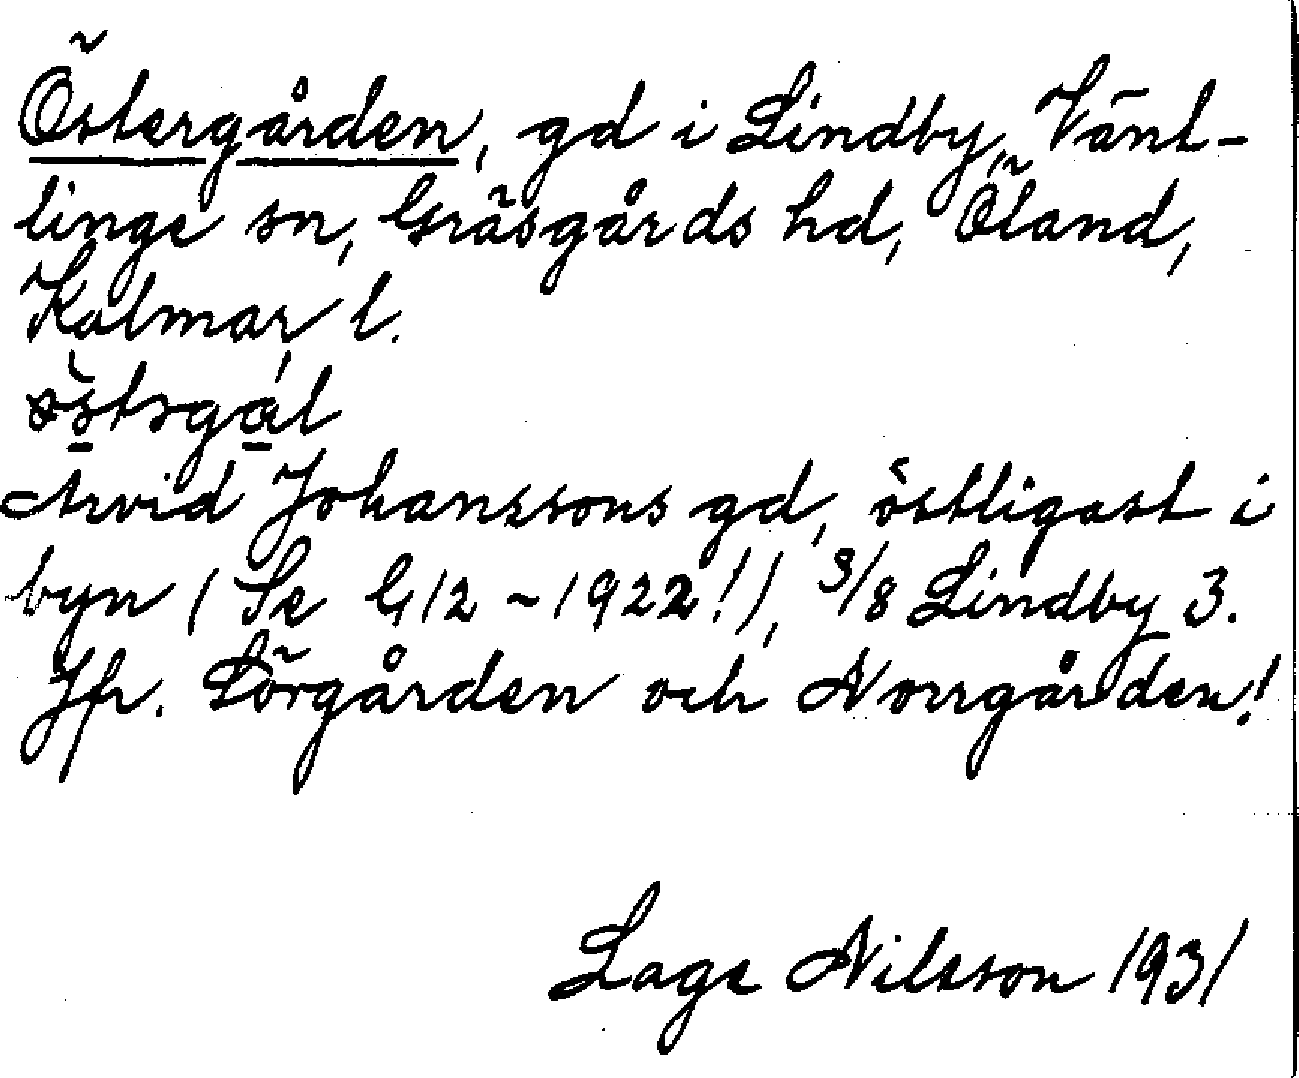 Östergården, gd i Lindby, Vänt-
linge sn, Gräsgårds hd, Öland,
Kalmar l.
östrgál
Arvid Johanssons gd, östligast i
byn (Se G 12 ~ 1922!), 3/8 Lindby 3.
Jfr. Sörgården och Norrgården!
Lage Nilsson 1931